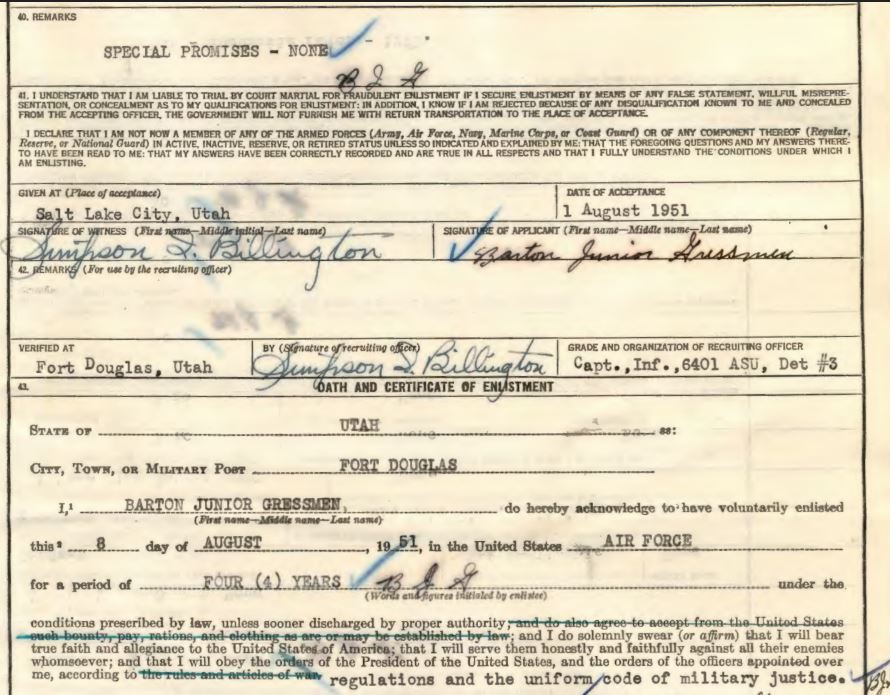 40. REMARKS
SPECIAL PROMISES - NONE
B J G
41. I UNDERSTAND THAT I AM LIABLE TO TRIAL BY COURT MARTIAL FOR FRAUDULENT ENLISTMENT IF I SECURE ENLISTMENT BY MEANS OF ANY FALSE STATEMENT, WILLFUL MISREPRE-
SENTATION, OR CONCEALMENT AS TO MY QUALIFICATIONS FOR ENLISTMENT; IN ADDITION, I KNOW IF I AM REJECTED BECAUSE OF ANY DISQUALIFICATION KNOWN TO ME AND CONCEALED
FROM THE ACCEPTING OFFICER, THE GOVERNMENT WILL NOT FURNISH ME WITH RETURN TRANSPORTATION TO THE PLACE OF ACCEPTANCE.
I DECLARE THAT I AM NOT NOW A MEMBER OF ANY OF THE ARMED FORCES (Army, Air Force, Navy, Marine Corps, or Coast Guard) OR OF ANY COMPONENT THEREOF (Regular,
Reserve, or National Guard) IN ACTIVE, INACTIVE, RESERVE, OR RETIRED STATUS UNLESS SO INDICATED AND EXPLAINED BY ME; THAT THE FOREGOING QUESTIONS AND MY ANSWERS THERE-
TO HAVE BEEN READ TO ME; THAT MY ANSWERS HAVE BEEN CORRECTLY RECORDED AND ARE TRUE IN ALL RESPECTS AND THAT I FULLY UNDERSTAND THE CONDITIONS UNDER WHICH I
AM ENLISTING.
GIVEN AT (Place of acceptance) DATE OF ACCEPTANCE
Salt Lake City, Utah 1 August 1951
SIGNATURE OF WITNESS (First name—Middle initial—Last name) SIGNATURE OF APPLICANT (First name—Middle name—Last name)
Simpson S. Billington Barton Junior Gressmen
42. REMARKS (For use by the recruiting officer)
VERIFIED AT BY (Signature of recruiting officer) GRADE AND ORGANIZATION OF RECRUITING OFFICER
Fort Douglas, Utah Simpson S. Billington Capt.,Inf.,6401 ASU, Det #3
43. OATH AND CERTIFICATE OF ENLISTMENT
STATE OF UTAH ss:
CITY, TOWN, OR MILITARY POST FORT DOUGLAS
I,¹ BARTON JUNIOR GRESSMEN, do hereby acknowledge to have voluntarily enlisted
(First name—Middle name—Last name)
this² 8 day of AUGUST, 19 51, in the United States AIR FORCE
for a period of FOUR (4) YEARS B J G under the
(Words and figures initialed by enlistee)
conditions prescribed by law, unless sooner discharged by proper authority; and do also agree to accept from the United States
such bounty, pay, rations, and clothing as are or may be established by law; and I do solemnly swear (or affirm) that I will bear
true faith and allegiance to the United States of America; that I will serve them honestly and faithfully against all their enemies
whomsoever; and that I will obey the orders of the President of the United States, and the orders of the officers appointed over
me, according to the rules and articles of war. regulations and the uniform code of military justice.